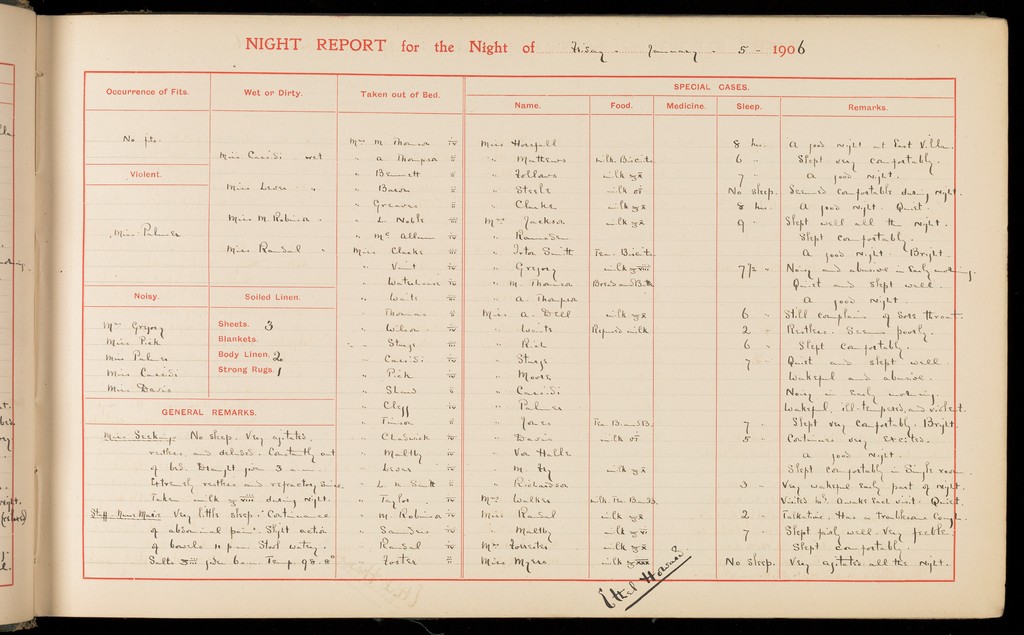 NIGHT REPORT for the Night of Friday January 5 - 1906
Occurrence of Fits.
No fits.
Violent.
Miss Palmer
Noisy.
Mrs Gregory
Miss Pick
Miss Palmer
Miss Cassidi
Miss Davis
Wet or Dirty.
Miss Cassidi wet
Miss Lever "
Miss M. Robinson "
Miss Randal "
Soiled Linen.
Sheets. 3
Blankets.
Body Linen. 2
Strong Rugs. 1
GENERAL REMARKS.
Miss Seeking. No sleep. Very agitated,
restless and deluded. Constantly out
of bed. Draught given 3 a.m.
Extremely restless and refractory since.
Taken milk during night.
Staff-Nurse Very little sleep. Continuance
of abdominal pain. Slight action
of bowels 11 p.m. Stool watery.
Salts given 6 a.m. Temp. 98.8°
Taken out of Bed.
Mrs M. Thomson iv
" A. Thompson ii
" Bennett ii
" Bacon ii
" Greaves ii
" L. Noble iii
" Mc Allum iv
Miss Clarke iii
" Vint iv
" Waterhouse iv
" Waits iii
" Thomas ii
" Wilson iv
" Sturge iii
" Cassidi iv
" Pick iv
" Shaw ii
" Clegg iv
" Timson ii
" Chadwick iv
" Maltby iv
" Lever iii
" L. K. Smith ii
" Taylor iv
" M. Robinson iv
" Sanders iv
" Randal iv
" Foster ii
SPECIAL CASES.
Name. Food. Medicine. Sleep. Remarks.
Miss Horsfall 8 hrs. A good night at East Villa.
" Mathews milk. Biscuits 6 " Slept very comfortably.
" Follows milk 7 " A good night.
" Steele milk No sleep. Seemed comfortable during night.
" Clarke milk 8 hrs. A good night. Quiet.
Mrs Jackson milk 9 " Slept well all the night.
" Ramsden Slept comfortably.
" Tutor Smith Tea. Biscuits A good night. Bright.
" Gregory milk 7½ " Noisy and abusive in early morning.
" M. Thomson Bread and Butter Quiet and slept well.
" A. Thompson A good night.
Miss A. Dell milk 6 " Still complains of sore throat.
" Waits Refused milk 2 " Restless. Seems poorly.
" Rich 6 " Slept comfortably.
" Sturge 7 " Quiet and slept well.
" Moore Wakeful and abusive.
" Cassidi Noisy in early morning.
" Palmer Wakeful, ill-tempered, and violent.
" Jones Tea B. and B. 7 " Slept very comfortably. Bright.
" Davis milk 5 " Continues very excited.
" Von Halle A good night.
" M. Fry milk Slept comfortably in single room.
" Richardson 3 " Very wakeful early part of night.
Mrs Walker milk. Tea. B and B. Visited Awake each visit. Quiet.
Miss Randal milk 2 " Talkative. Has a troublesome cough.
" Maltby milk 7 " Slept fairly well. Very feeble.
Mrs Forrester milk Slept comfortably.
Miss Myers milk No sleep. Very agitated all the night.
Ethel Howard